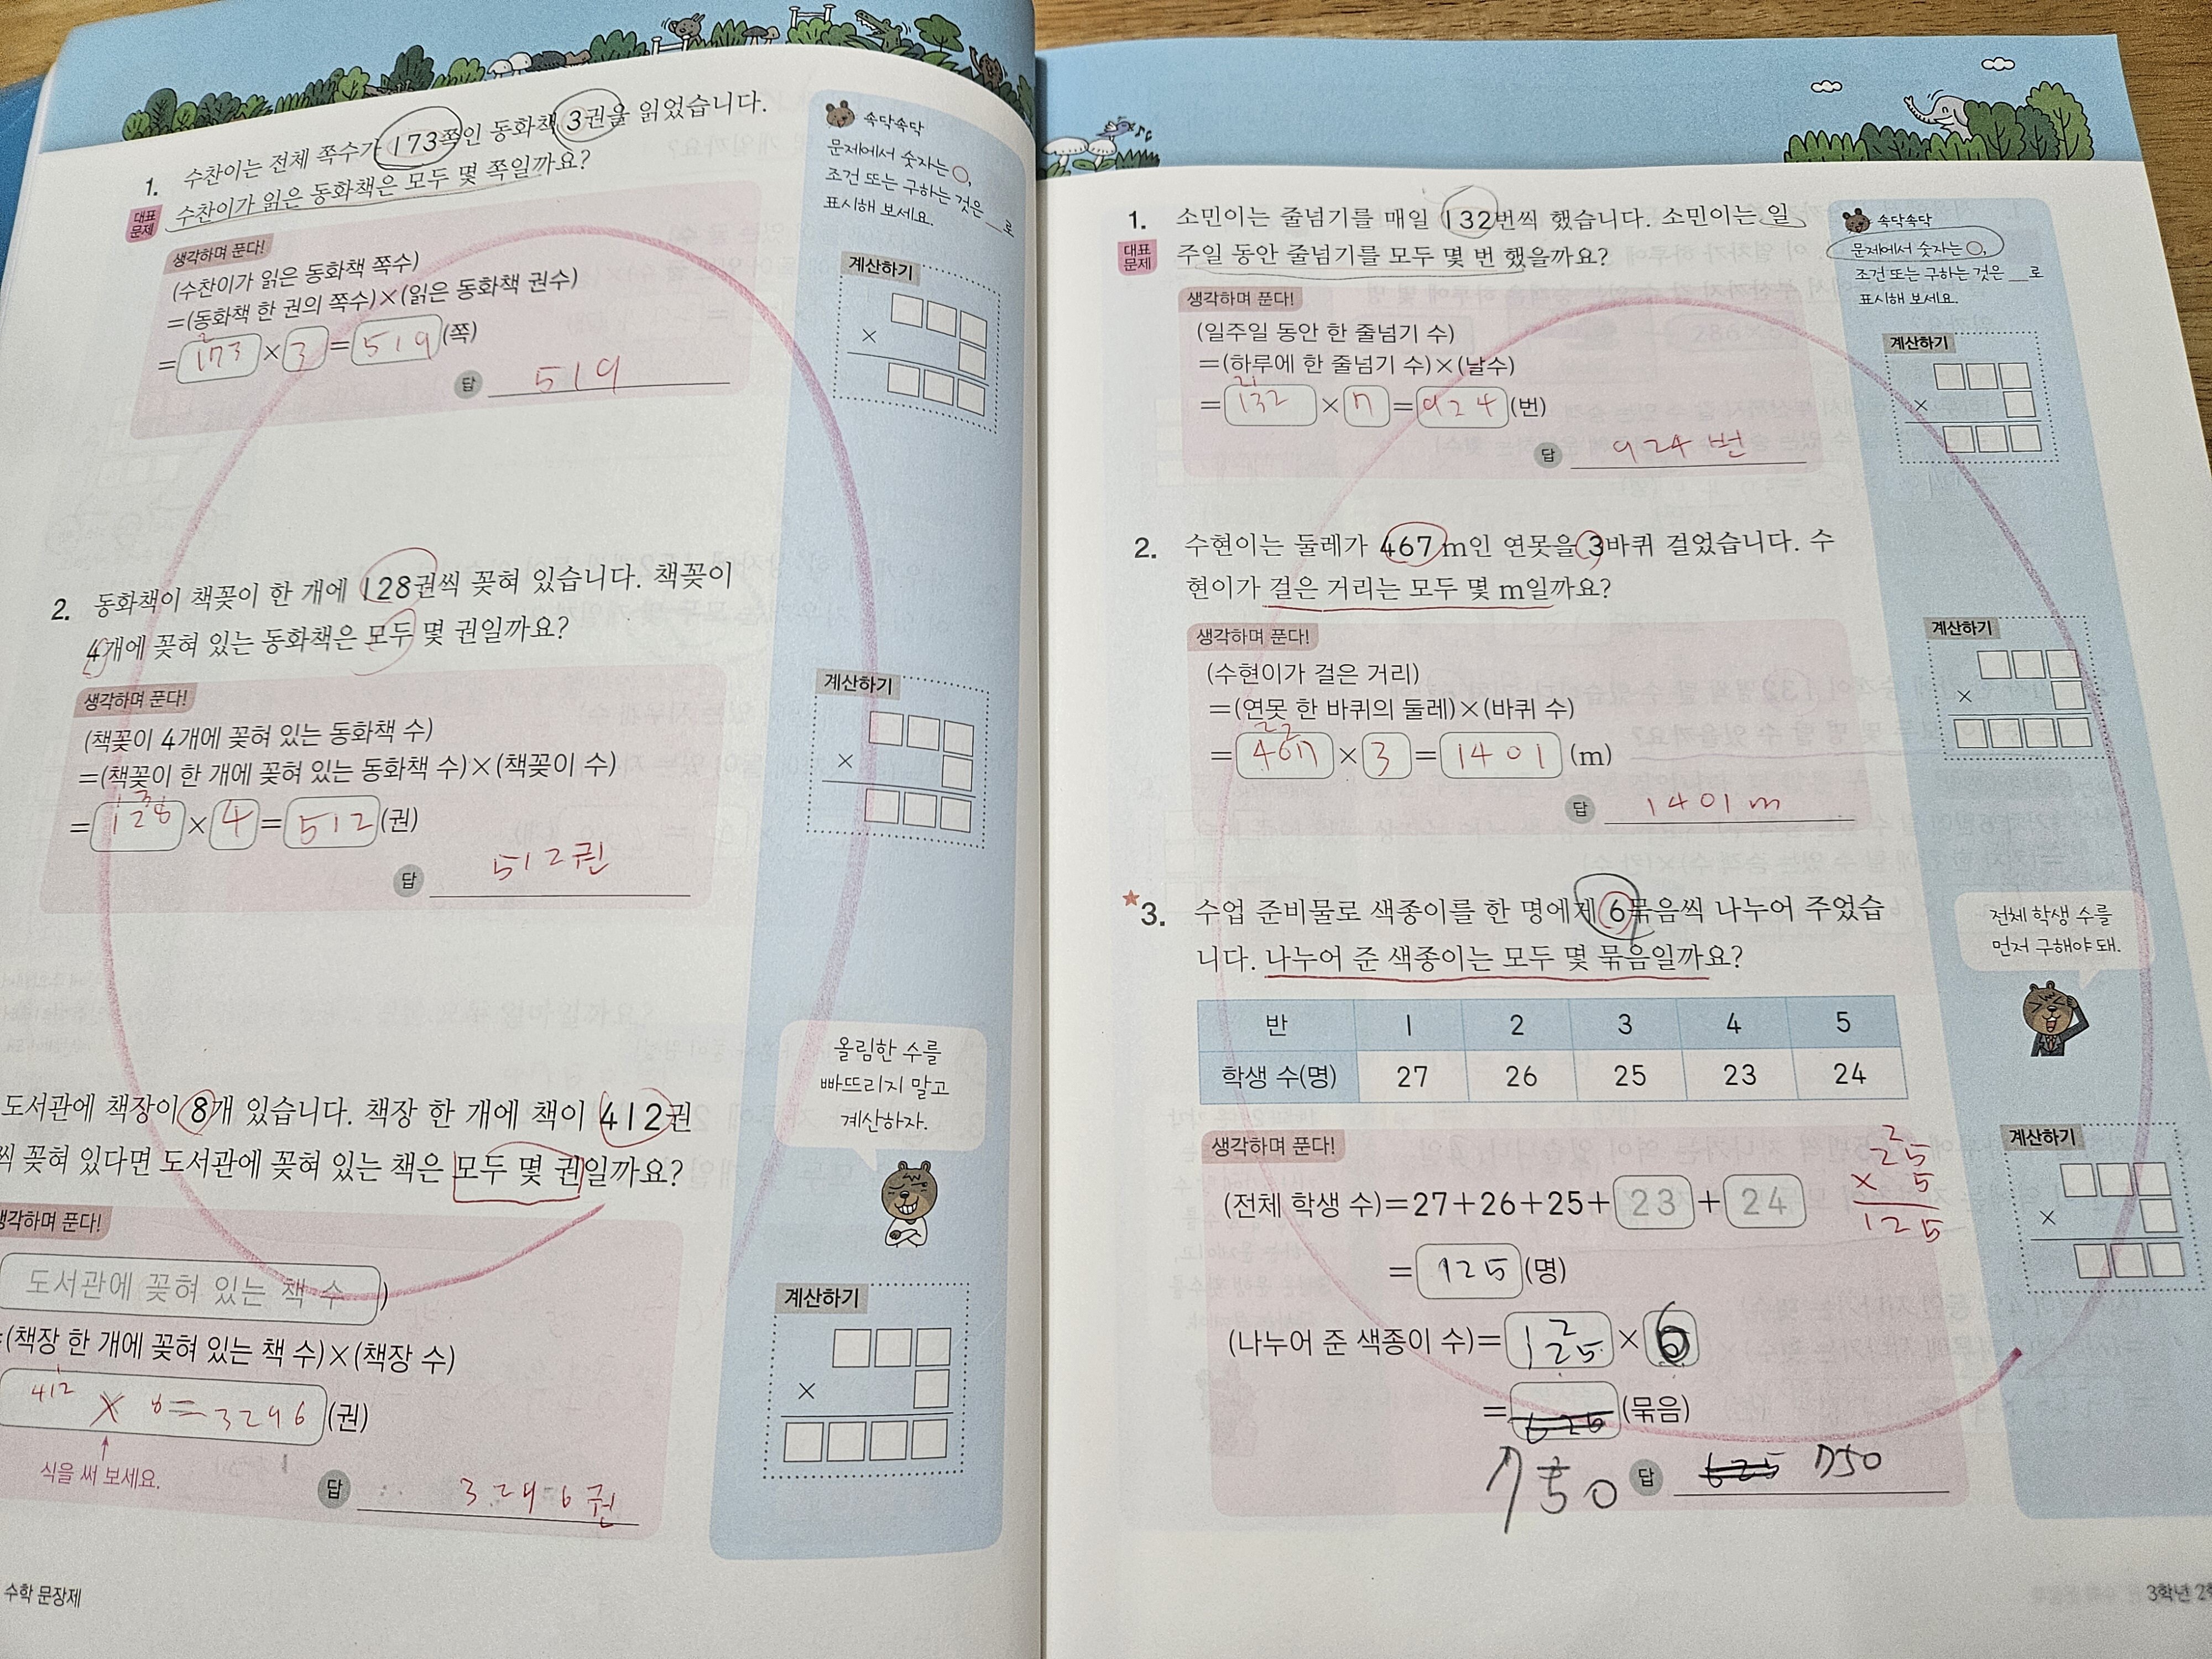 1. 수찬이는 전체 쪽수가 173쪽인 동화책 3권을 읽었습니다.
대표 문제 수찬이가 읽은 동화책은 모두 몇 쪽일까요?
생각하며 푼다!
(수찬이가 읽은 동화책 쪽수)
=(동화책 한 권의 쪽수)×(읽은 동화책 권수)
2
=173×3=519(쪽)
답 519
속닥속닥
문제에서 숫자는 ○,
조건 또는 구하는 것은 __로
표시해 보세요.
계산하기
×
2. 동화책이 책꽂이 한 개에 128권씩 꽂혀 있습니다. 책꽂이
4개에 꽂혀 있는 동화책은 모두 몇 권일까요?
생각하며 푼다!
(책꽂이 4개에 꽂혀 있는 동화책 수)
=(책꽂이 한 개에 꽂혀 있는 동화책 수)×(책꽂이 수)
1 3
=128×4=512(권)
답 512권
계산하기
×
도서관에 책장이 8개 있습니다. 책장 한 개에 책이 412권
씩 꽂혀 있다면 도서관에 꽂혀 있는 책은 모두 몇 권일까요?
생각하며 푼다!
도서관에 꽂혀 있는 책 수)
=(책장 한 개에 꽂혀 있는 책 수)×(책장 수)
1
412 × 8=3296 (권)
식을 써 보세요.
답 3296권
올림한 수를
빠뜨리지 말고
계산하자.
계산하기
×
수학 문장제
1. 소민이는 줄넘기를 매일 132번씩 했습니다. 소민이는 일
대표 문제 주일 동안 줄넘기를 모두 몇 번 했을까요?
생각하며 푼다!
(일주일 동안 한 줄넘기 수)
=(하루에 한 줄넘기 수)×(날수)
21
=132×7=924(번)
답 924번
속닥속닥
문제에서 숫자는 ○,
조건 또는 구하는 것은 __로
표시해 보세요.
계산하기
×
2. 수현이는 둘레가 467 m인 연못을 3바퀴 걸었습니다. 수
현이가 걸은 거리는 모두 몇 m일까요?
생각하며 푼다!
(수현이가 걸은 거리)
=(연못 한 바퀴의 둘레)×(바퀴 수)
22
=467×3=1401 (m)
답 1401m
계산하기
×
★3. 수업 준비물로 색종이를 한 명에게 6묶음씩 나누어 주었습
니다. 나누어 준 색종이는 모두 몇 묶음일까요?
전체 학생 수를
먼저 구해야 돼.
반 1 2 3 4 5
학생 수(명) 27 26 25 23 24
생각하며 푼다!
(전체 학생 수)=27+26+25+23+24
=125(명)
2
(나누어 준 색종이 수)=125×6
=625(묶음)
750
답 625 750
2
25
× 5
125
계산하기
×
3학년 2